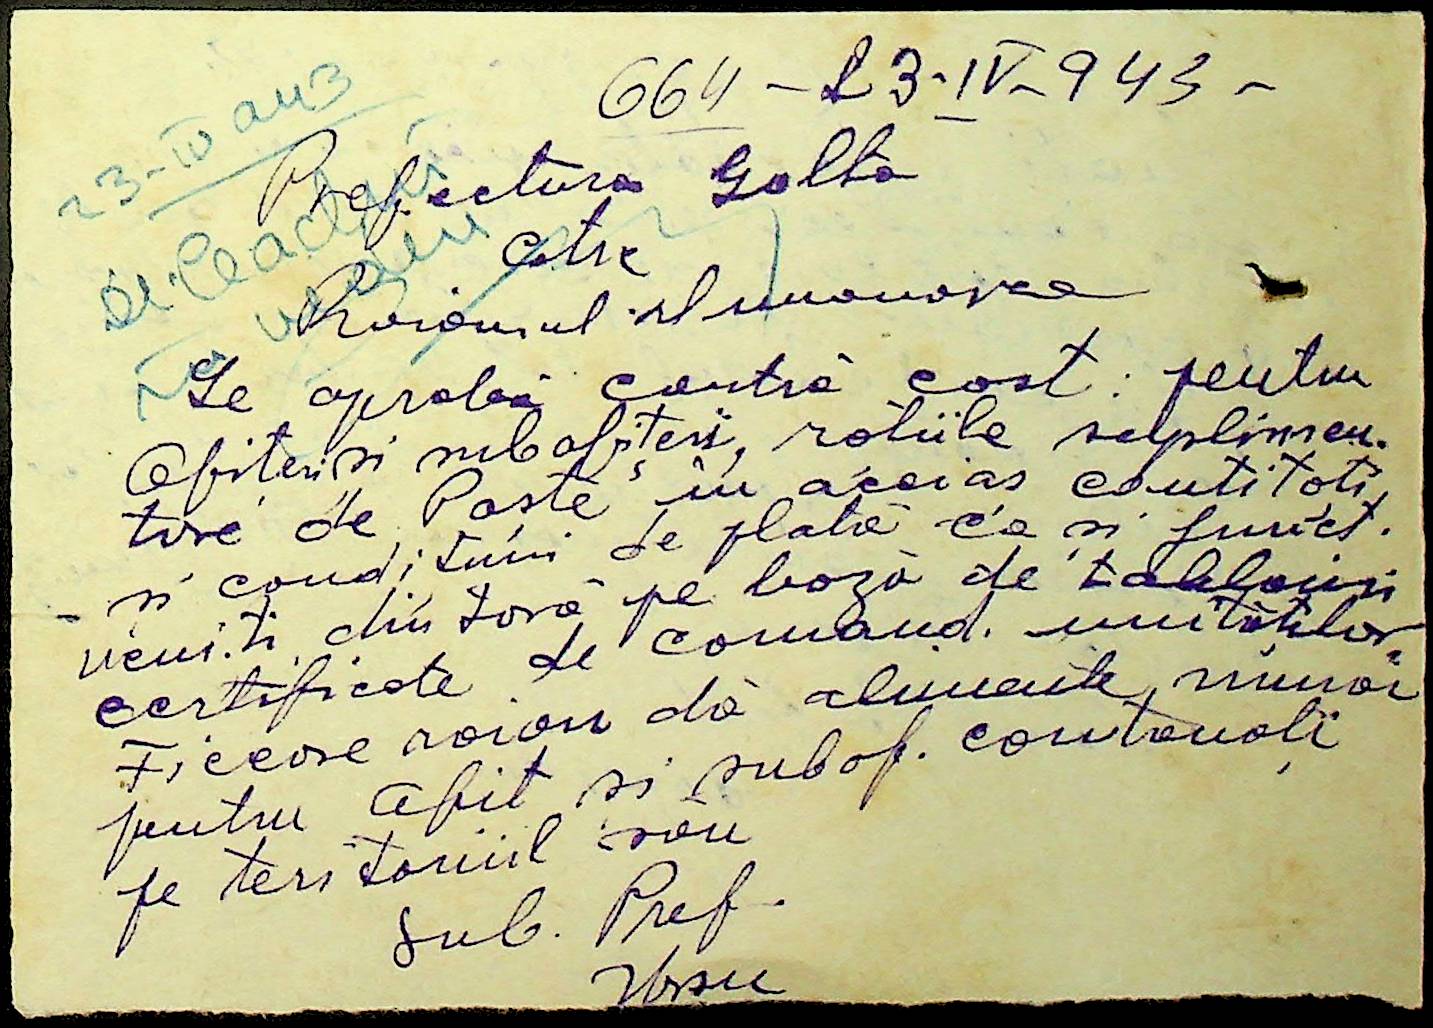 664 - 23-IV-943 -
23-IV 943
Prefectura Golta
Dl.
către
Raionul
Se aprobă contra cost pentru
Ofiteri si subofiteri, ratiile suplimen-
tare de Paste în aceias cantitati,
si conditiuni de plată ca si funct.
veniti din tară pe bază de tablouri
certificate de comand. unitătilor
Ficcare raion dă alimente numai
pentru Ofit si subof. cantonati
pe teritoriul său
Sub. Pref.